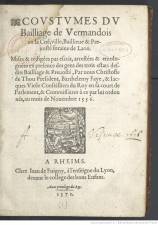 COVSTVMES DV
Bailliage de Vermandois
en la Cité, ville, Banlieue & Pre-
uosté foraine de Laon.
Mises & redigées par escrit, arrestées & emolo-
guées en presence des gens des trois estats des-
dits Bailliage & Preuosté, Par nous Christofle
de Thou President, Barthelemy Faye, & Iac-
ques Viole Conseillers du Roy en sa court de
Parlement, & Commissaires à ce par luy ordon-
nés, au mois de Nouembre 1556.
A RHEIMS.
Chez Iean de Foigny, à l'enseigne du Lyon,
deuant le college des bons Enfans.
Auec priuilege du Roy.
1571.